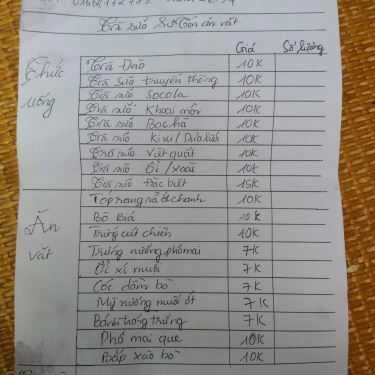 Trà sữa Sư Tôn ăn vặt
Giá Số lượng
Thức uống
Trà Đào 10K
Trà sữa truyền thống 10K
Trà sữa Socola 10K
Trà sữa Khoai môn 10K
Trà sữa Bạc hà 10K
Trà sữa Kiwi / Dưa lưới 10K
Trà sữa Việt quất 10K
Trà sữa Ổi / Xoài 10K
Trà sữa Đặc biệt 15K
Ăn vặt
Tóp rang rả ớt chanh 10K
Bò Bía 10K
Trứng cút chiên 10K
Trứng nướng phômai 7K
Ổi xí muội 7K
Cóc dầm bò 7K
Mỳ nướng muối ớt 7K
Bánh tráng trứng 7K
Phô mai que 10K
Bắp xào bò 10K